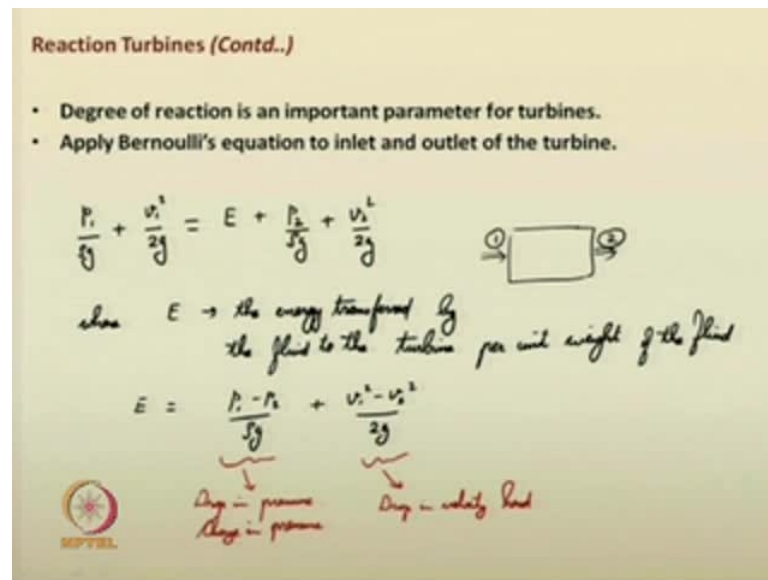 Reaction Turbines (Contd..)
• Degree of reaction is an important parameter for turbines.
• Apply Bernoulli's equation to inlet and outlet of the turbine.
P₁/ρg + v₁²/2g = E + P₂/ρg + v₂²/2g
① ②
where E → the energy transferred by
the fluid to the turbine per unit weight of the fluid
E = P₁-P₂/ρg + v₁²-v₂²/2g
Drop in pressure Drop in velocity head
Change in pressure
NPTEL